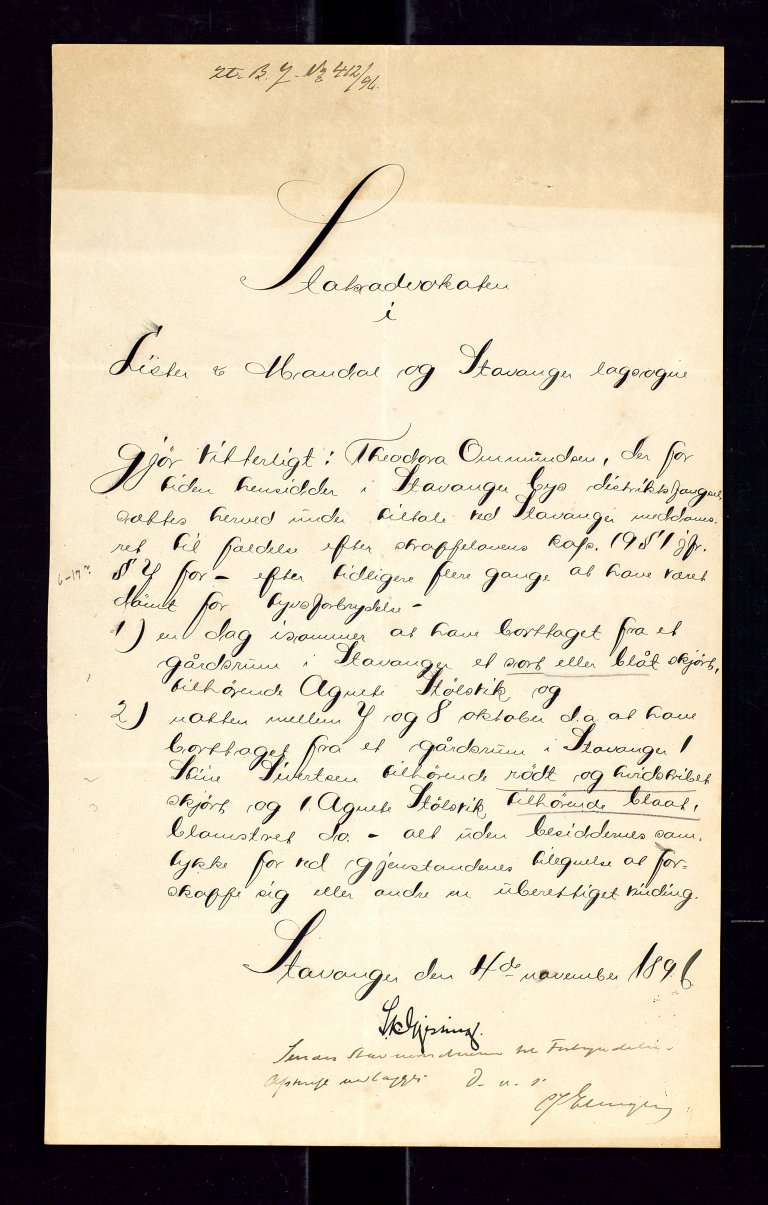 St. B. J. No 412/96.
Statsadvokaten
i
Lister & Mandal og Stavanger lagsogne
gjør vitterligt: Theodora Ommundsen, der for
tiden hensidder i Stavanger bys distriktsfængsel,
sættes herved under tiltale ved Stavanger meddoms-
ret til fældelse efter straffelovens kap. 19 § 1 jfr.
§ 7 for – efter tidligere flere gange at have været
6–17
dømt for tyvsforbrydelse –
1) en dag i sommer at have borttaget fra et
gårdsrum i Stavanger et sort eller blåt skjørt,
tilhørende Agnete Stølsvik og
2) natten mellem 7 og 8 oktober d.a. at have
borttaget fra et gårdsrum i Stavanger 1
Sivertsen tilhørende rødt og hvidstribet
skjørt og 1 Agnete Stølsvik tilhørende blaat,
blomstret do. – alt uden besiddernes sam-
tykke for ved gjenstandenes tilegnelse at for-
skaffe sig eller andre en uberettiget vinding.
Stavanger den 4de november 1896
Forkyndelse.
Afskrift vedlagges d. u. s.